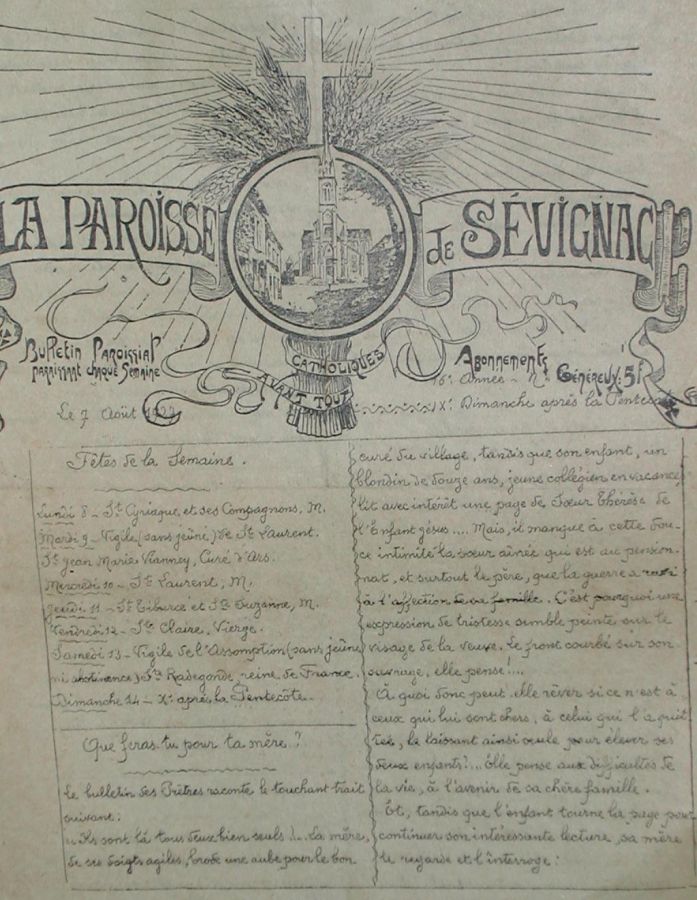 LA PAROISSE
de SÉVIGNAC
Bulletin Paroissial
paraissant chaque Semaine
CATHOLIQUES
AVANT TOUT
Abonnements
Généreux: 5f
16e Année - N
Le 7 Août 1922
IXe Dimanche après la Pentecôte
Fêtes de la Semaine.
Lundi 8 - St Cyriaque et ses Compagnons, M.
Mardi 9 - Vigile (sans jeûne) de St Laurent.
St Jean Marie Vianney, Curé d'Ars.
Mercredi 10 - St Laurent, M.
Jeudi 11 - St Tiburce et Ste Suzanne, M.
Vendredi 12 - Ste Claire, Vierge.
Samedi 13 - Vigile de l'Assomption (sans jeûne
ni abstinence) Ste Radegonde, reine de France.
Dimanche 14 - Xe après la Pentecôte.
Que feras-tu pour ta mère?
Le bulletin des Prêtres raconte le touchant trait
suivant:
"Ils sont là tous deux bien seuls!... La mère,
de ses doigts agiles, brode une aube pour le bon
curé du village, tandis que son enfant, un
blondin de douze ans, jeune collégien en vacance,
lit avec intérêt une page de Sœur Thérèse de
l'Enfant Jésus.... Mais, il manque à cette dou-
ce intimité la sœur aînée qui est au pension-
nat, et surtout le père, que la guerre a ravi
à l'affection de sa famille. C'est pourquoi une
expression de tristesse semble peinte sur le
visage de la veuve. Le front courbé sur son
ouvrage, elle pense!...
À quoi donc peut-elle rêver si ce n'est à
ceux qui lui sont chers, à celui qui l'a quit-
tée, la laissant ainsi seule pour élever ses
deux enfants?... Elle pense aux difficultés de
la vie, à l'avenir de sa chère famille.
Et, tandis que l'enfant tourne la page pour
continuer son intéressante lecture, sa mère
le regarde et l'interroge: